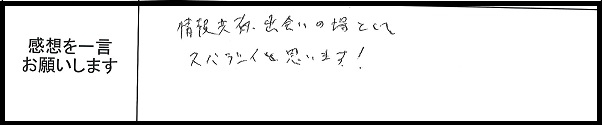 感想を一言
お願いします
情報共有、出会いの場として
スバラシイと思います!